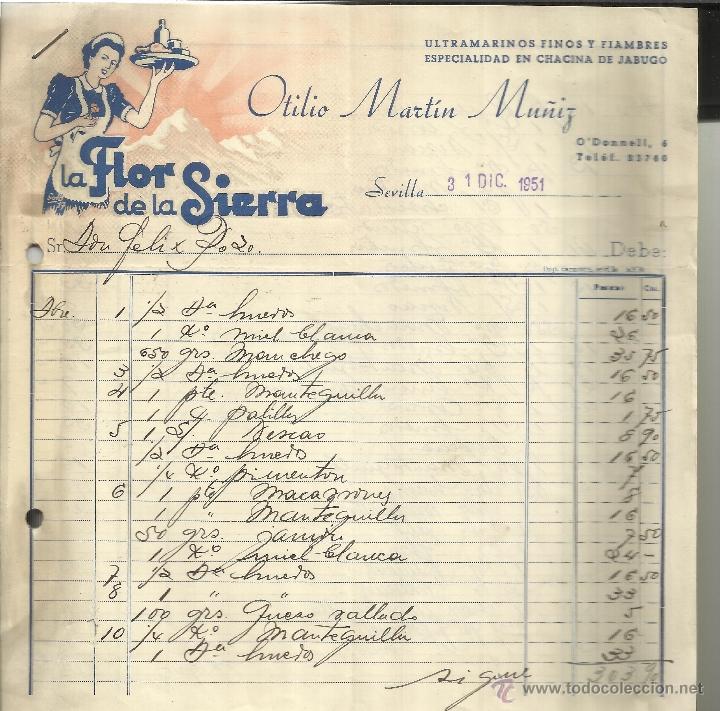 ULTRAMARINOS FINOS Y FIAMBRES
ESPECIALIDAD EN CHACINA DE JABUGO
Otilio Martín Muñiz
O'Donnell, 6
Teléf. 23760
La Flor
de la Sierra
Sevilla 31 DIC. 1951
Sr. Don Felix Pozo. Debe:
Pesetas Cts.
Dbre. 1 1/2 Dª huevos 16 50
1 Kº miel blanca 26
650 grs. Manchego 35 75
3 1/2 Dª huevos 16 50
4 1 pte. Mantequilla 16
1 4 palill 1 75
5 1 8 90
1/2 Dª huevos 16 50
1/4 Kº pimenton 7
6 1 pte Macarrones 8
1 " Mantequilla 16
50 grs. jamón 7 50
1 Kº miel blanca 24 -
7 1/2 Dª huevos 16 50
8 1 " " 33
100 grs. Queso rallado 5
10 1/4 Kº Mantequilla 16
1 Dª huevos 33
sigue 303 90
© todocoleccion.net